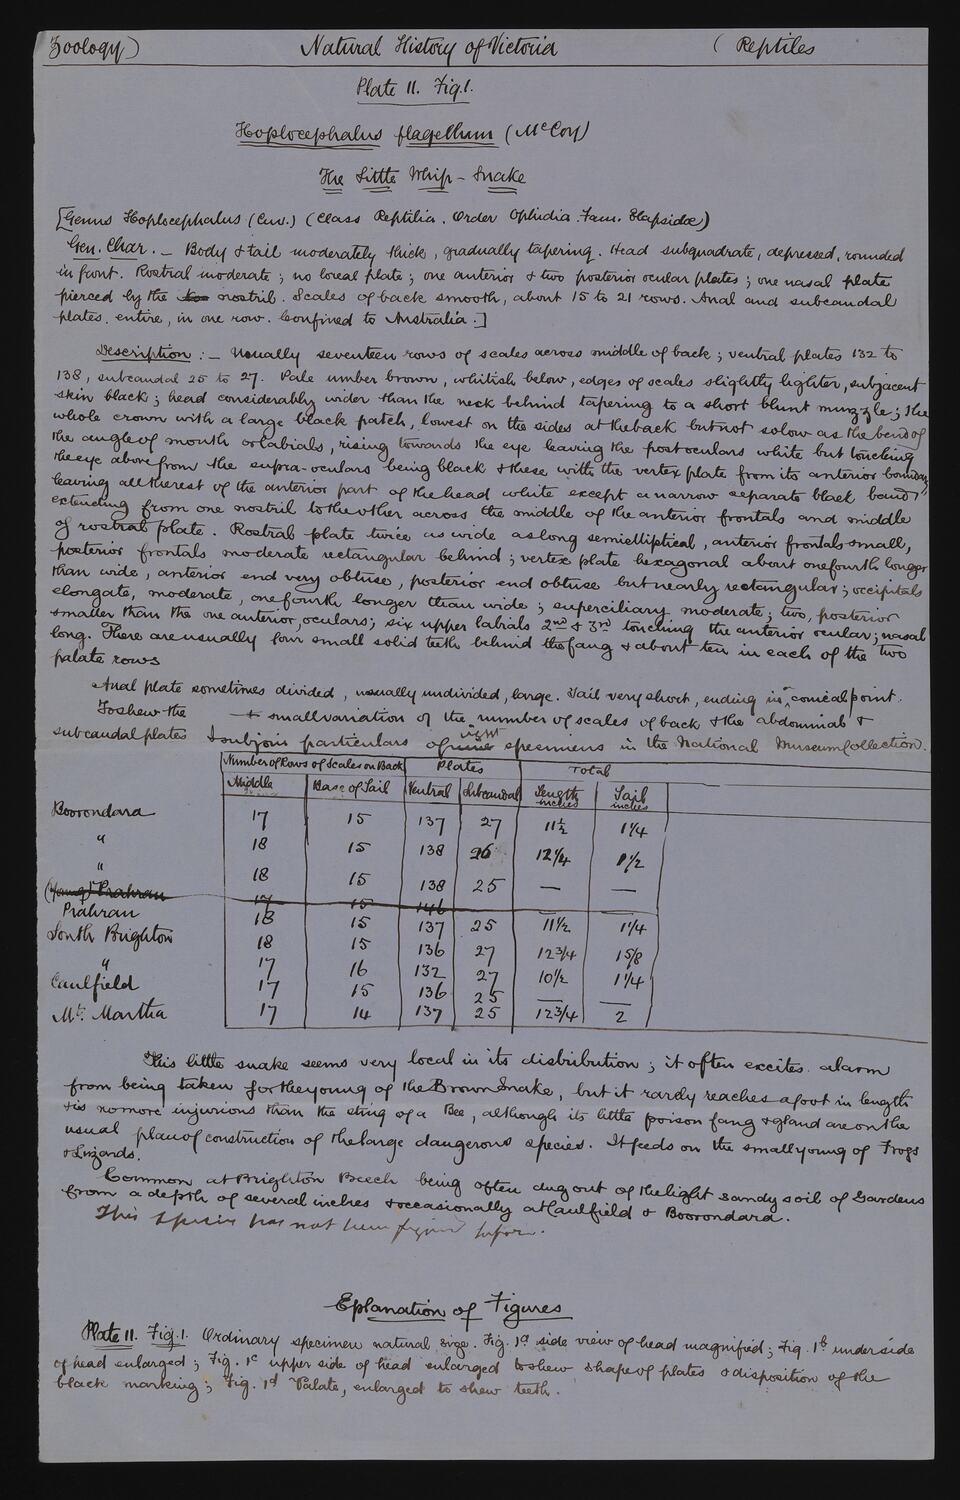 Zoology) Natural History of Victoria (Reptiles
Plate 11. Fig. 1.
Hoplocephalus flagellum (McCoy)
The Little Whip-Snake
[Genus Hoplocephalus (Cuv.) (Class Reptilia. Order Ophidia. Fam. Elapsidæ)
Gen. Char. — Body & tail moderately thick, gradually tapering. Head subquadrate, depressed, rounded
in front. Rostral moderate; no loreal plate; one anterior & two posterior ocular plates; one nasal plate
pierced by the nostril. Scales of back smooth, about 15 to 21 rows. Anal and subcaudal
plates entire, in one row. Confined to Australia.]
Description:— Usually seventeen rows of scales across middle of back; ventral plates 132 to
138, subcaudal 25 to 27. Pale umber brown, whitish below, edges of scales slightly lighter, subjacent
skin black; head considerably wider than the neck behind tapering to a short blunt muzzle; the
whole crown with a large black patch, lowest on the sides at the back but not so low as the bend of
the angle of mouth or labials, rising towards the eye leaving the postoculars white but touching
the eye above from the supra-oculars being black & these with the vertex plate from its anterior boundary
leaving all the rest of the anterior part of the head white except a narrow separate black band
extending from one nostril to the other across the middle of the anterior frontals and middle
of rostral plate. Rostral plate twice as wide as long semielliptical, anterior frontals small,
posterior frontals moderate rectangular behind; vertex plate hexagonal about one fourth longer
than wide, anterior end very obtuse, posterior end obtuse but nearly rectangular; occipitals
elongate, moderate, one fourth longer than wide; superciliary moderate; two, posterior
smaller than the one anterior, oculars; six upper labials 2nd & 3rd touching the anterior ocular; nasal
long. There are usually four small solid teeth behind the fang & about ten in each of the two
palate rows
Anal plate sometimes divided, usually undivided, large. Tail very short, ending in conical point.
To shew the small variation of the number of scales of back & the abdominal &
subcaudal plates I subjoin particulars of eight specimens in the National Museum Collection.
Number of Rows of Scales on Back Plates Total
Middle Base of Tail Ventral Subcaudal Length inches Tail inches
Boorondara 17 15 137 27 11½ 1¼
" 18 15 138 26 12¼ 1½
" 18 15 138 25 — —
(Young) Prahran 17 15 146
Prahran 18 15 137 25 11½ 1¼
South Brighton 18 15 136 27 12¾ 1⅝
" 17 16 132 27 10½ 1¼
Caulfield 17 15 136 25 — —
Mt. Martha 17 14 137 25 12¾ 2
This little snake seems very local in its distribution; it often excites alarm
from being taken for the young of the Brown Snake, but it rarely reaches a foot in length
& is no more injurious than the sting of a Bee, although its little poison fang & gland are on the
usual plan of construction of the large dangerous species. It feeds on the small young of Frogs
& Lizards.
Common at Brighton Beech being often dug out of the light sandy soil of Gardens
from a depth of several inches & occasionally at Caulfield & Boorondara.
This species has not been figured before.
Eplanation of Figures
Plate 11. Fig. 1. Ordinary specimen natural size. Fig. 1a side view of head magnified; Fig. 1b underside
of head enlarged; Fig. 1c upper side of head enlarged to shew shape of plates & disposition of the
black marking; Fig. 1d Palate, enlarged to shew teeth.